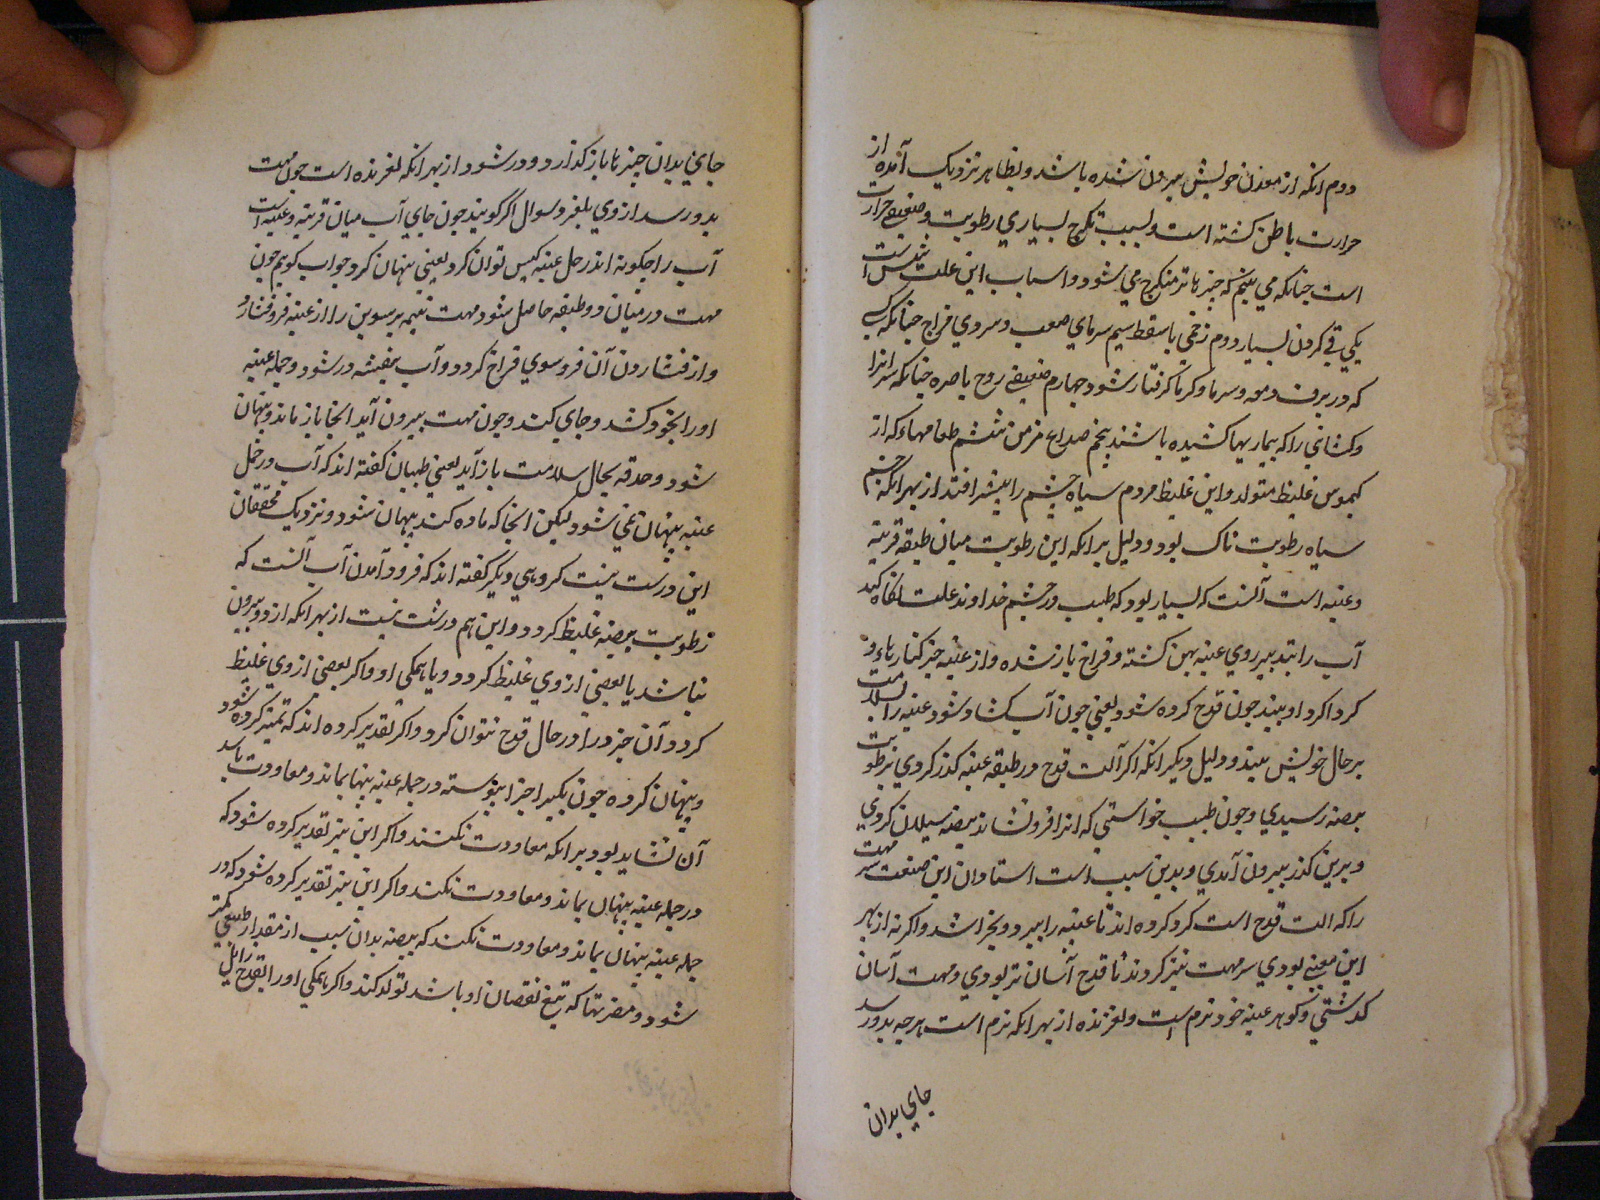 دوم انکه از معدن خویش بیرون شده باشد و بظاهر نزدیک آمده از
حرارت باطن کشته است و بسبب تکرج بسیاری رطوبت و ضعیفی حرارت
است چنانکه می بینم که چیزها تر متکرج می شود و اسباب این علت شش است
یکی قی کردن بسیار دوم زخمی یا سقطه سیم سرمای صعب و سردی مزاج چنانکه کسی
که در برف و مه و سرما و کرما کرفتار شود چهارم ضعیفی روح باصره چنانکه پیرانرا
و کسانی را که بیماریها کشیده باشند پنجم صداع مزمن ششم طعامهاء که از
کیموس غلیظ متولد و این غلیظ مردم سیاه چشم را بیشتر افتد از بهر انکه چشم
سیاه رطوبت ناک بود و دلیل بر انکه این رطوبت میان طبقه قرنیه
و عنبیه است آنست که بسیار بود که طبیب در چشم خداوند علت نکاه کند
آب را بتدبیر روی عنبیه پهن کشته و فراخ باز شده و از عنبیه جز کنارهاء و
کرداکرد او نبیند چون قدح کرده شود یعنی چون آب کشاد شود عنبیه را بسلامت
بر حال خویش بیند و دلیل دیکر انکه اکر آلت قدح در طبقه عنبیه کذر کردی برطوبت
بیضه رسیدی و چون طبیب خواستی که انرا فرو نشاند بیضه سیلان کردی
و برین کذر بیرون آمدی و بدین سبب است استادان این صنعت سر مهت
را که الت قدح است کرد کرده اند تا عنبیه را نبرد و نخراشد و اکر نه از بهر
این معنی بودی سر مهت تیز کردند تا قدح آسان تر بودی و مهت آسان
کذشتی و کوهر عنبیه خود نرم است و لغزنده از بهر انکه نرم است هر چه بدو رسد
جای بدان
جای بدان چیز تا باز کذارد و دور شود از بهر انکه لغزنده است چون مهت
بدو رسد از وی بلغزد و سوال اکر کویند چون جای آب میان قرنیه و عنبیه است
آب را چکونه اندر خمل عنبیه کبس توان کرد یعنی پنهان کرد جواب کویم چون
مهت در میان دو طبقه حاصل شود مهت نیمه برسوین را از عنبیه فرو فشارد
و از فشاردن آن فرو سوی فراخ کردد و آب بنفشه در شود و خمله عنبیه
او را بخود کشد و جای کند و چون مهت بیرون آید انجا باز ماند و پنهان
شود و حدقه بحال سلامت باز آید یعنی طبیبان کفته اند که آب در خمل
عنبیه پنهان نمی شود لیکن انجا که ماده کند پنهان شود و نزدیک محققان
این درست نیست کروهی دیکر کفته اند که فرود آمدن آب آنست که
رطوبت بیضه غلیظ کردد و این هم درست نیست از بهر انکه از دو بیرون
نباشد یا بعضی از وی غلیظ کردد و یا همکی او و اکر بعضی از وی غلیظ
کردد آن جزو را در حال قدح نتوان کرد و اکر تقدیر کرده اند که تمیز کرده شود
و پنهان کرده چون بکبر اجزا پیوسته در خمله عنبیه پنها بماند و معاودت باسد
آن نشاید بود بر انکه معاودت نکنند و اکر این نیز تقدیر کرده شود که
در خمله عنبیه پنهان بماند و معاودت نکند و اکر این نیز تقدیر کرده شود که در
خمله عنبیه پنهان بماند و معاودت نکند که بیضه بدان سبب از مقدار طبیعی کمتر
شود و مضرتها که تبع نقصان او باشد تولد کند و اکر همکی او را بقدح زائل